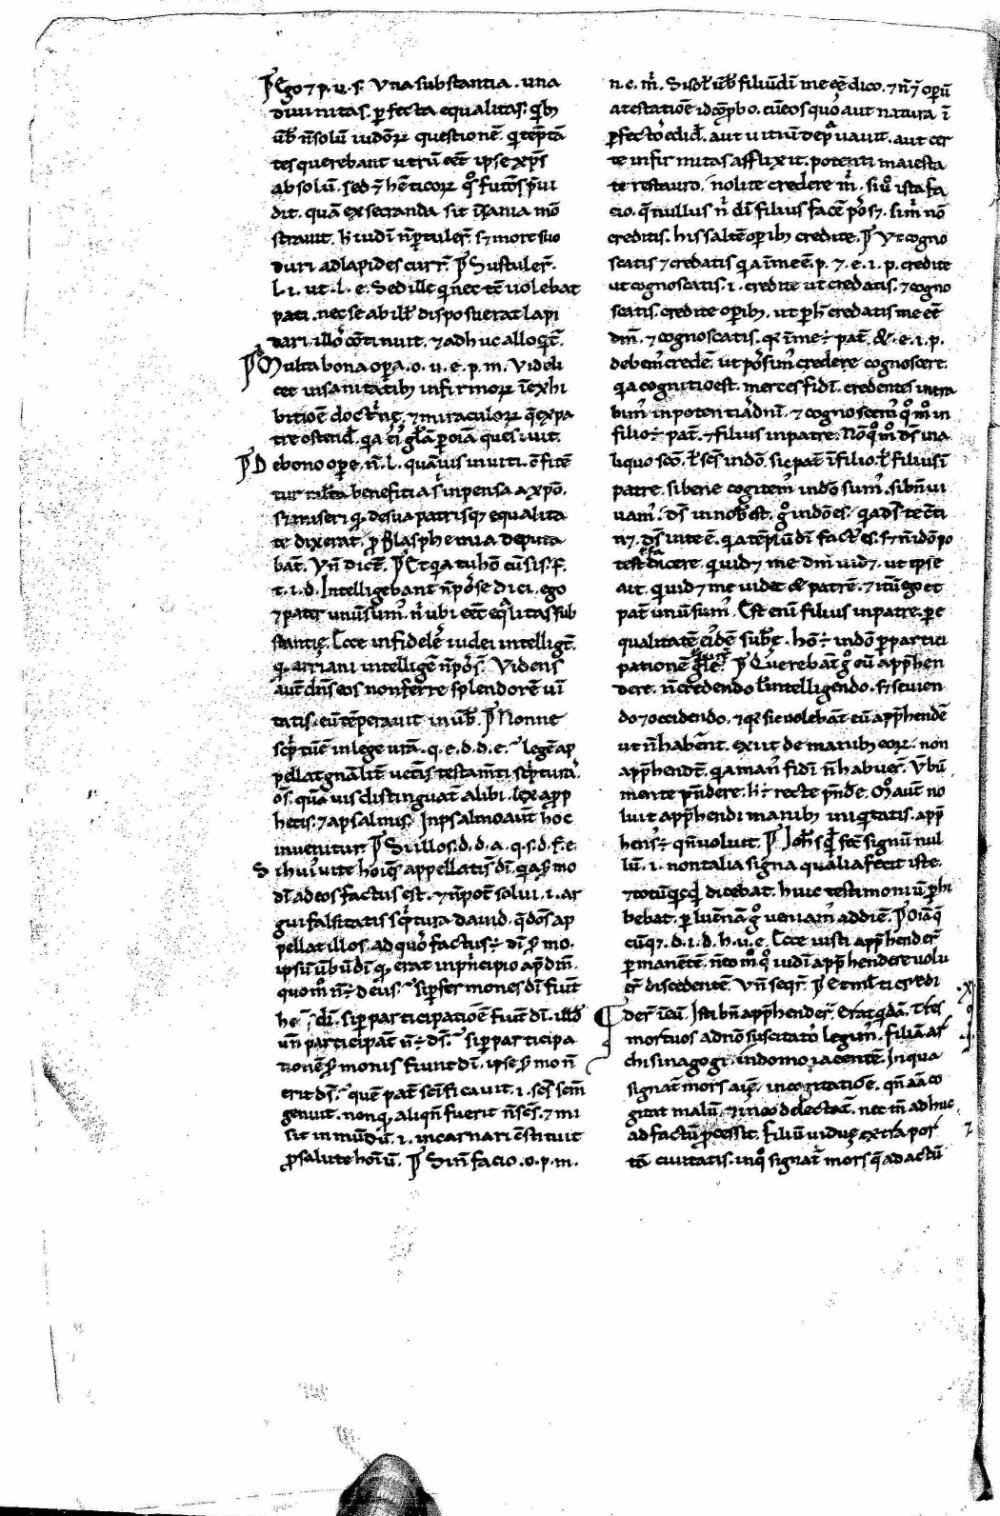 Ego ⁊ p. u. s. Una substantia. una
diuinitas. ꝑfecta equalitas. qͥbꝫ
uerbis n̄ solū iudeoꝝ questionē. qͥ tēptā
tes querebant utrū eēt ipse xp̄s
absoluit. sed ⁊ hēticoꝝ qͦs futuros p̄ui
dit. quā exsecranda sit īsania mō
strauit. h̄ iudi n̄ ꝑtuler̄. s; more suo
duri ad lapides currt̄. Sustuler̄.
l. i. ut. l. e. Sed ille qͥ nec tē uolebat
pati. nec se ab ill' disposuerat lapi
dari illoꝝ cōtinuit. ⁊ adhuc alloqͥt̄.
Multa bona oꝑa. o. u. e. p. m. Videli
cet in sanitatibꝫ infirmoꝝ ī exhi
bitiōe doctͥnę. ⁊ miraculoꝝ q̄ ex pa
tre ostend'. qͥa ei' gl'am ꝑ oīa quesiuit.
De bono oꝑe. n̄. l. quāuis inuiti. cōfitē
tur beneficia s' inpensa a xp̄o.
s; miseri qͥ de sua patrisqꝫ equalita
te dixerat. ꝓ blasphemia deputa
bāt. Vn̄ dict̄. Et qͥa tu hō cū sis. f.
t. i. d. Intelligebant n̄ posse dici. ego
⁊ pater unū sum'. n̄ ubi eēt eqͣlitas sub
stantię. Ecce infideles iudei intelligt̄.
qͥ arriani intelligē n̄ pos̄s. Videns
aut̄ dn̄s eos non ferre splendorē ueri
tatis. eū tēperauit in uerb'. Nonne
scͥptū ē in lege ur̄a. q. e. d. d. e. legē ap
pellat gn̄alit̄ uet̄is testam̄ti scͥpturas
om̄s. quāuis distinguat̄ alibi. lex a ꝓp
hetis. ⁊ a psalmis. In psalmo aut̄ hoc
inuenitur. Si illos. d. d. a. q. s. d. f. e.
Si hui' uite hoīes appellati s̄ di. qͥa s'mo
di ad eos factus est. ⁊ n̄ potest solui. i. ar
gui falsitatis scͥptura dauid. q̄ deos ap
pellat illos. ad quos factus ÷ di s'mo.
ipsū uerbū di qͥ erat in pͥncipio apd' dm̄.
quom̄ n̄ ÷ deus. Si ꝑ sermones di fiunt
hoīes di. si ꝑ participatiōe fiunt di. illud
un̄ participāt n̄ ÷ ds̄. Si ꝑ participa
tionē s'monis fiunt di. ipse s'mo n̄
erit ds̄. quē pat̄ sc̄ificauit. i. sc̄m
genuit. non qͥ aliqn̄ fuerit n̄ sc̄s. ⁊ mi
sit in mūdū. i. incarnari cōstituit
ꝓ salute hoīū. Si n̄ facio. o. p. m.
n. c. m̄. Si uob' filiū di me eē dico. ⁊ n̄ oꝑū
atestatiōe id cōprobo. cū eos quos aut natura ī
ꝑfectos edid'. aut uitiū deprauauit. aut cer
te infirmitas afflixit. potenti maiesta
te restauro. nolite credere m̄. si u' ista fa
cio. q̄ nullus n̄ di filius facē pot̄. si m̄ nō
creditis. his saltē oꝑibꝫ credite. Vt cogno
scatis ⁊ credatis qͥa ī me ē. p. ⁊. e. i. p. credite
ut cognoscatis. i. credite ut credatis. ⁊ cogno
scatis. credite oꝑibꝫ. ut ꝑ h̄ credatis me eē
dm̄. ⁊ cognoscatis. qͥa ī me ÷ pat̄. &. e. i. p.
debem' credē. ut possim' credere cognoscere.
qͥa cognitio est. merces fidi. credentes intra
bim' in potentia dn̄i. ⁊ cognoscem' qͦm̄ in
filio ÷ pat̄. ⁊ filius in patre. Nō qͦm̄ ds̄ in a
liquo sc̄o. l' sc̄s in dō. sic pat̄ ī filio. l' filius ī
patre. si bene cogitem' in dō sum'. si bn̄ ui
uam'. ds̄ in nob' est. gͦ in dō es. qͥa ds̄ te cōti
net. ds̄ in te ē. qͥa tēplū di fact' es. s; n̄ idō po
test dicere. qui uidet me dm̄ uidet. ut ipse
ait. qui uidet me uidet & patrē. ⁊ itū ego et
pat̄ unū sum'. Est eni filius in patre. ꝑ e
qualitatē ei'dē sub̄e. hō ÷ in dō ꝑ partici
pationē gr̄e. Querebāt gͦ eū app̄hen
dere. n̄ credendo l' intelligendo. s; seuien
do ⁊ occidendo. ⁊ qͥa sic uolebāt eū app̄hendē
ut n̄ habēnt. exiit de manibꝫ eoꝝ. non
app̄hendt̄. qͥa man' fidi n̄ habuer̄. Verbū
mente p̄ndere. h̄ ÷ recte p̄ndē. Qͥ aut̄ no
luit app̄hendi manibꝫ iniqͥtatis. app̄
hens' ÷ qn̄ uoluit. Joh̄s qͥd' fec̄ signū nul
lū. i. non talia signa qualia fecit iste.
⁊ totū qͥcqͥd dicebat. huic testimoniū ꝑhi
bebat. ꝑ lucernā gͦ ueniam' ad diē. Oīa q̄
cūqꝫ. d. i. d. h. u. e. Ecce iusti app̄hender̄
ꝑmanētē. n̄ eo m̄ qͦ iudi app̄hendere uolu
er̄ discedentē. Vn̄ seqr̄. Et ml'ti credi
der̄ ī eū. Isti bn̄ app̄hender̄. Erat qͥdā. Tres
mortuos a dn̄o suscitatos legim'. filiā ar
chisinagogi. in domo iacentē. In qua
signat̄ mors aīę. in cogitatiōe. qn̄ aīa co
gitat malū. ⁊ in eo delectat̄. nec tn̄ adhuc
ad factū ꝓcessit. filiū uiduę. extra por
tā ciuitatis. in qͦ signat̄ mors q̄ ad actū